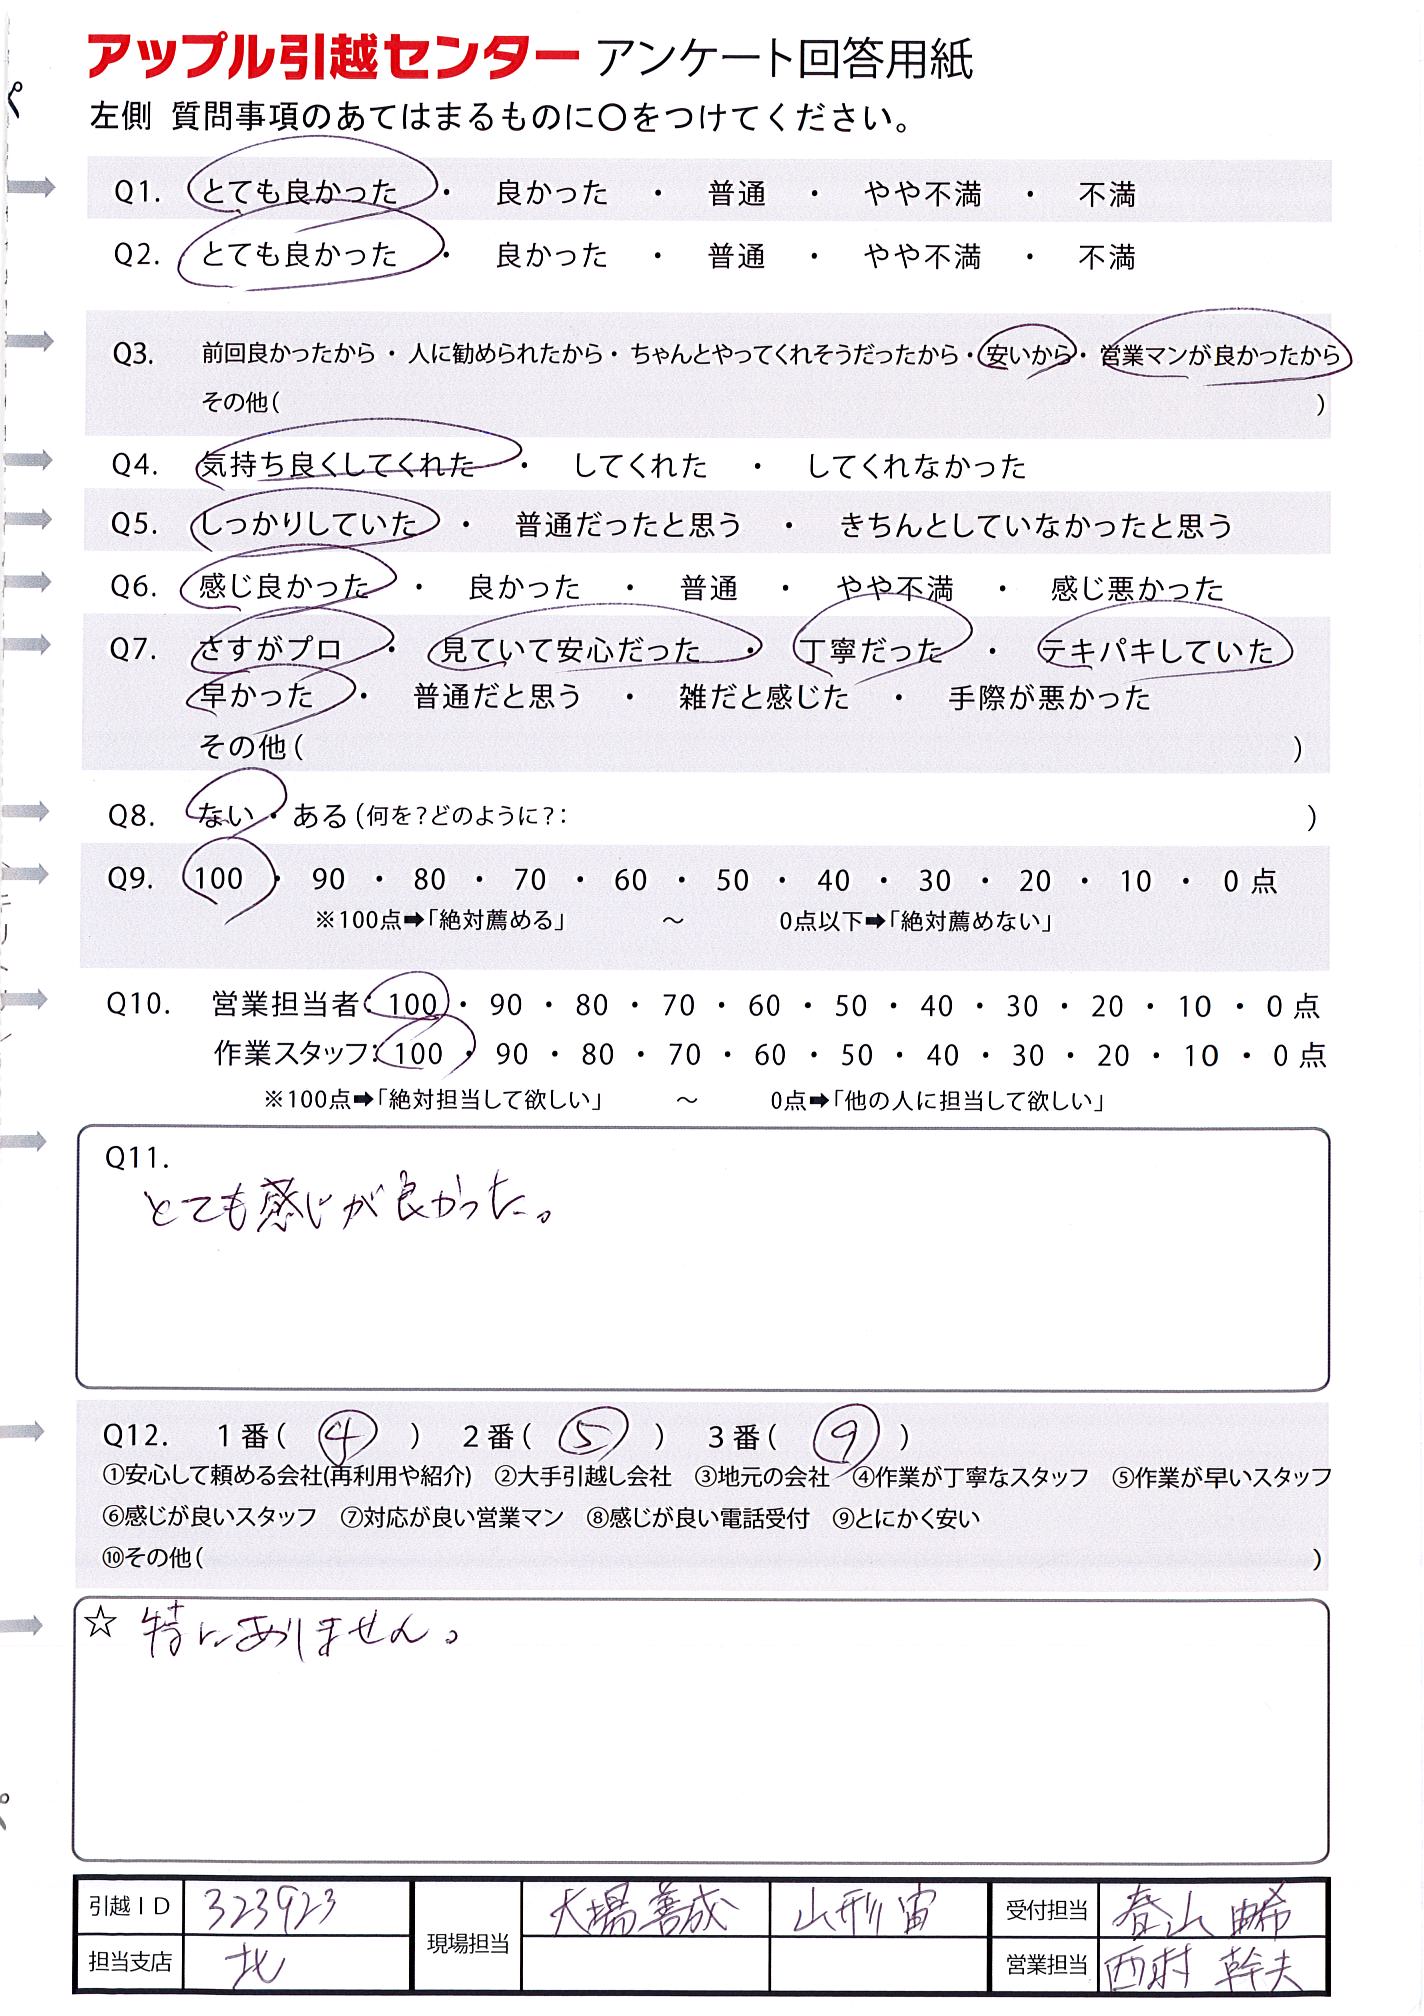 アップル引越センター アンケート回答用紙
左側 質問事項のあてはまるものに〇をつけてください。
Q1. とても良かった ・ 良かった ・ 普通 ・ やや不満 ・ 不満
Q2. とても良かった ・ 良かった ・ 普通 ・ やや不満 ・ 不満
Q3. 前回良かったから ・ 人に勧められたから ・ ちゃんとやってくれそうだったから ・ 安いから ・ 営業マンが良かったから
その他( )
Q4. 気持ち良くしてくれた ・ してくれた ・ してくれなかった
Q5. しっかりしていた ・ 普通だったと思う ・ きちんとしていなかったと思う
Q6. 感じ良かった ・ 良かった ・ 普通 ・ やや不満 ・ 感じ悪かった
Q7. さすがプロ ・ 見ていて安心だった ・ 丁寧だった ・ テキパキしていた
早かった ・ 普通だと思う ・ 雑だと感じた ・ 手際が悪かった
その他( )
Q8. ない ・ ある (何を?どのように?: )
Q9. 100 ・ 90 ・ 80 ・ 70 ・ 60 ・ 50 ・ 40 ・ 30 ・ 20 ・ 10 ・ 0 点
※100点➡「絶対薦める」 ～ 0点以下➡「絶対薦めない」
Q10. 営業担当者: 100 ・ 90 ・ 80 ・ 70 ・ 60 ・ 50 ・ 40 ・ 30 ・ 20 ・ 10 ・ 0 点
作業スタッフ: 100 ・ 90 ・ 80 ・ 70 ・ 60 ・ 50 ・ 40 ・ 30 ・ 20 ・ 10 ・ 0 点
※100点➡「絶対担当して欲しい」 ～ 0点➡「他の人に担当して欲しい」
Q11.
とても感じが良かった。
Q12. 1番( ④ ) 2番( ⑤ ) 3番( ⑨ )
①安心して頼める会社(再利用や紹介) ②大手引越し会社 ③地元の会社 ④作業が丁寧なスタッフ ⑤作業が早いスタッフ
⑥感じが良いスタッフ ⑦対応が良い営業マン ⑧感じが良い電話受付 ⑨とにかく安い
⑩その他( )
☆ 特にありません。
引越ID 323923 現場担当 大場善成 山形宙 受付担当 春山由希
担当支店 北 営業担当 西村幹夫